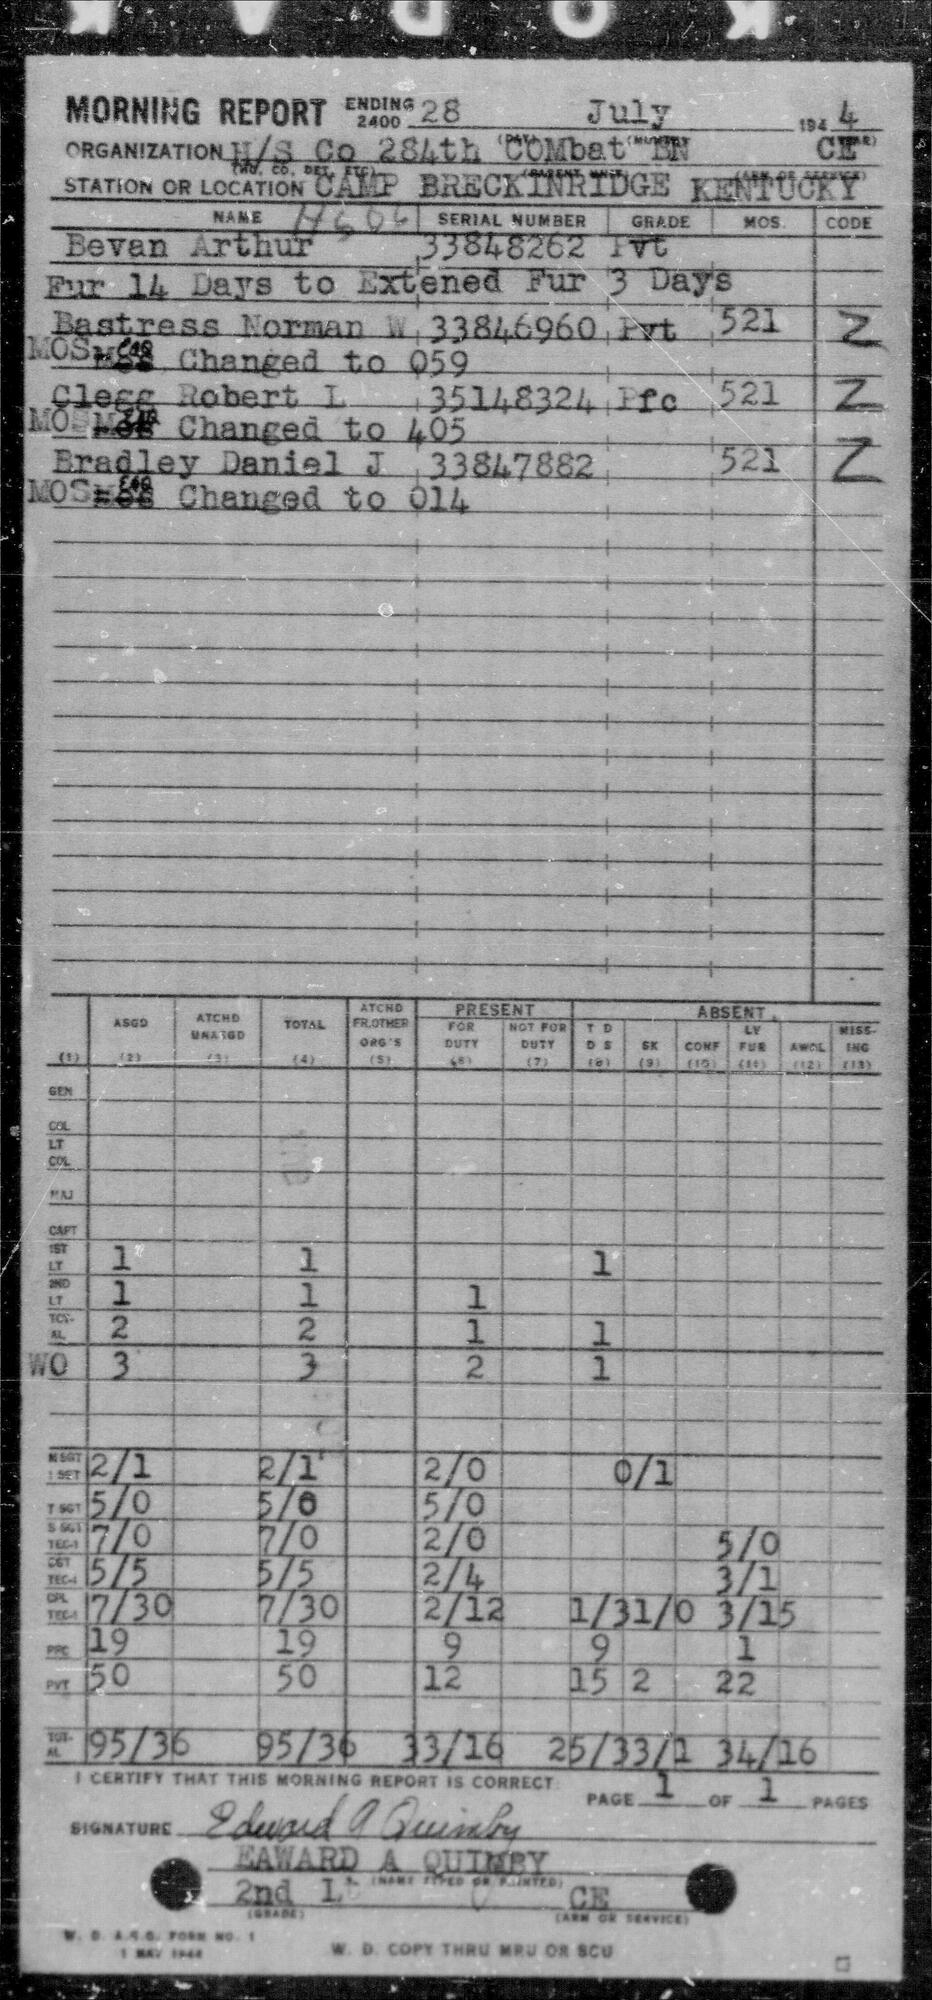 KODAK
MORNING REPORT ENDING 2400 28 July 194 4
ORGANIZATION H/S Co 284th COMbat BN CE
STATION OR LOCATION CAMP BRECKINRIDGE KENTUCKY
NAME SERIAL NUMBER GRADE MOS. CODE
Bevan Arthur 33848262 Pvt
Fur 14 Days to Extened Fur 3 Days
Bastress Norman W 33846960 Pvt 521 Z
MOS Changed to 059
Clegg Robert L 35148324 Pfc 521 Z
MOS Changed to 405
Bradley Daniel J 33847882 521 Z
MOS Changed to 014
PRESENT ABSENT
(1) ASGD (2) ATCHD UNASGD (3) TOTAL (4) ATCHD FR.OTHER ORG'S (5) FOR DUTY (6) NOT FOR DUTY (7) T D D S (8) SK (9) CONF (10) LV FUR (11) AWOL (12) MISS-ING (13)
GEN
COL
LT COL
MAJ
CAPT
1ST LT 1 1 1
2ND LT 1 1 1
TOT-AL 2 2 1 1
WO 3 3 2 1
M SGT 1 SGT 2/1 2/1 2/0 0/1
T SGT 5/0 5/0 5/0
S SGT TEC-3 7/0 7/0 2/0 5/0
SGT TEC-4 5/5 5/5 2/4 3/1
CPL TEC-5 7/30 7/30 2/12 1/31/0 3/15
PFC 19 19 9 9 1
PVT 50 50 12 15 2 22
TOT-AL 95/36 95/36 33/16 25/33/1 34/16
I CERTIFY THAT THIS MORNING REPORT IS CORRECT:
PAGE 1 OF 1 PAGES
SIGNATURE Edward A Quimby
EAWARD A QUIMBY
(NAME TYPED OR PRINTED)
2nd Lt CE
(GRADE) (ARM OR SERVICE)
W. D. A.G.O. FORM NO. 1
1 MAY 1944
W. D. COPY THRU MRU OR SCU